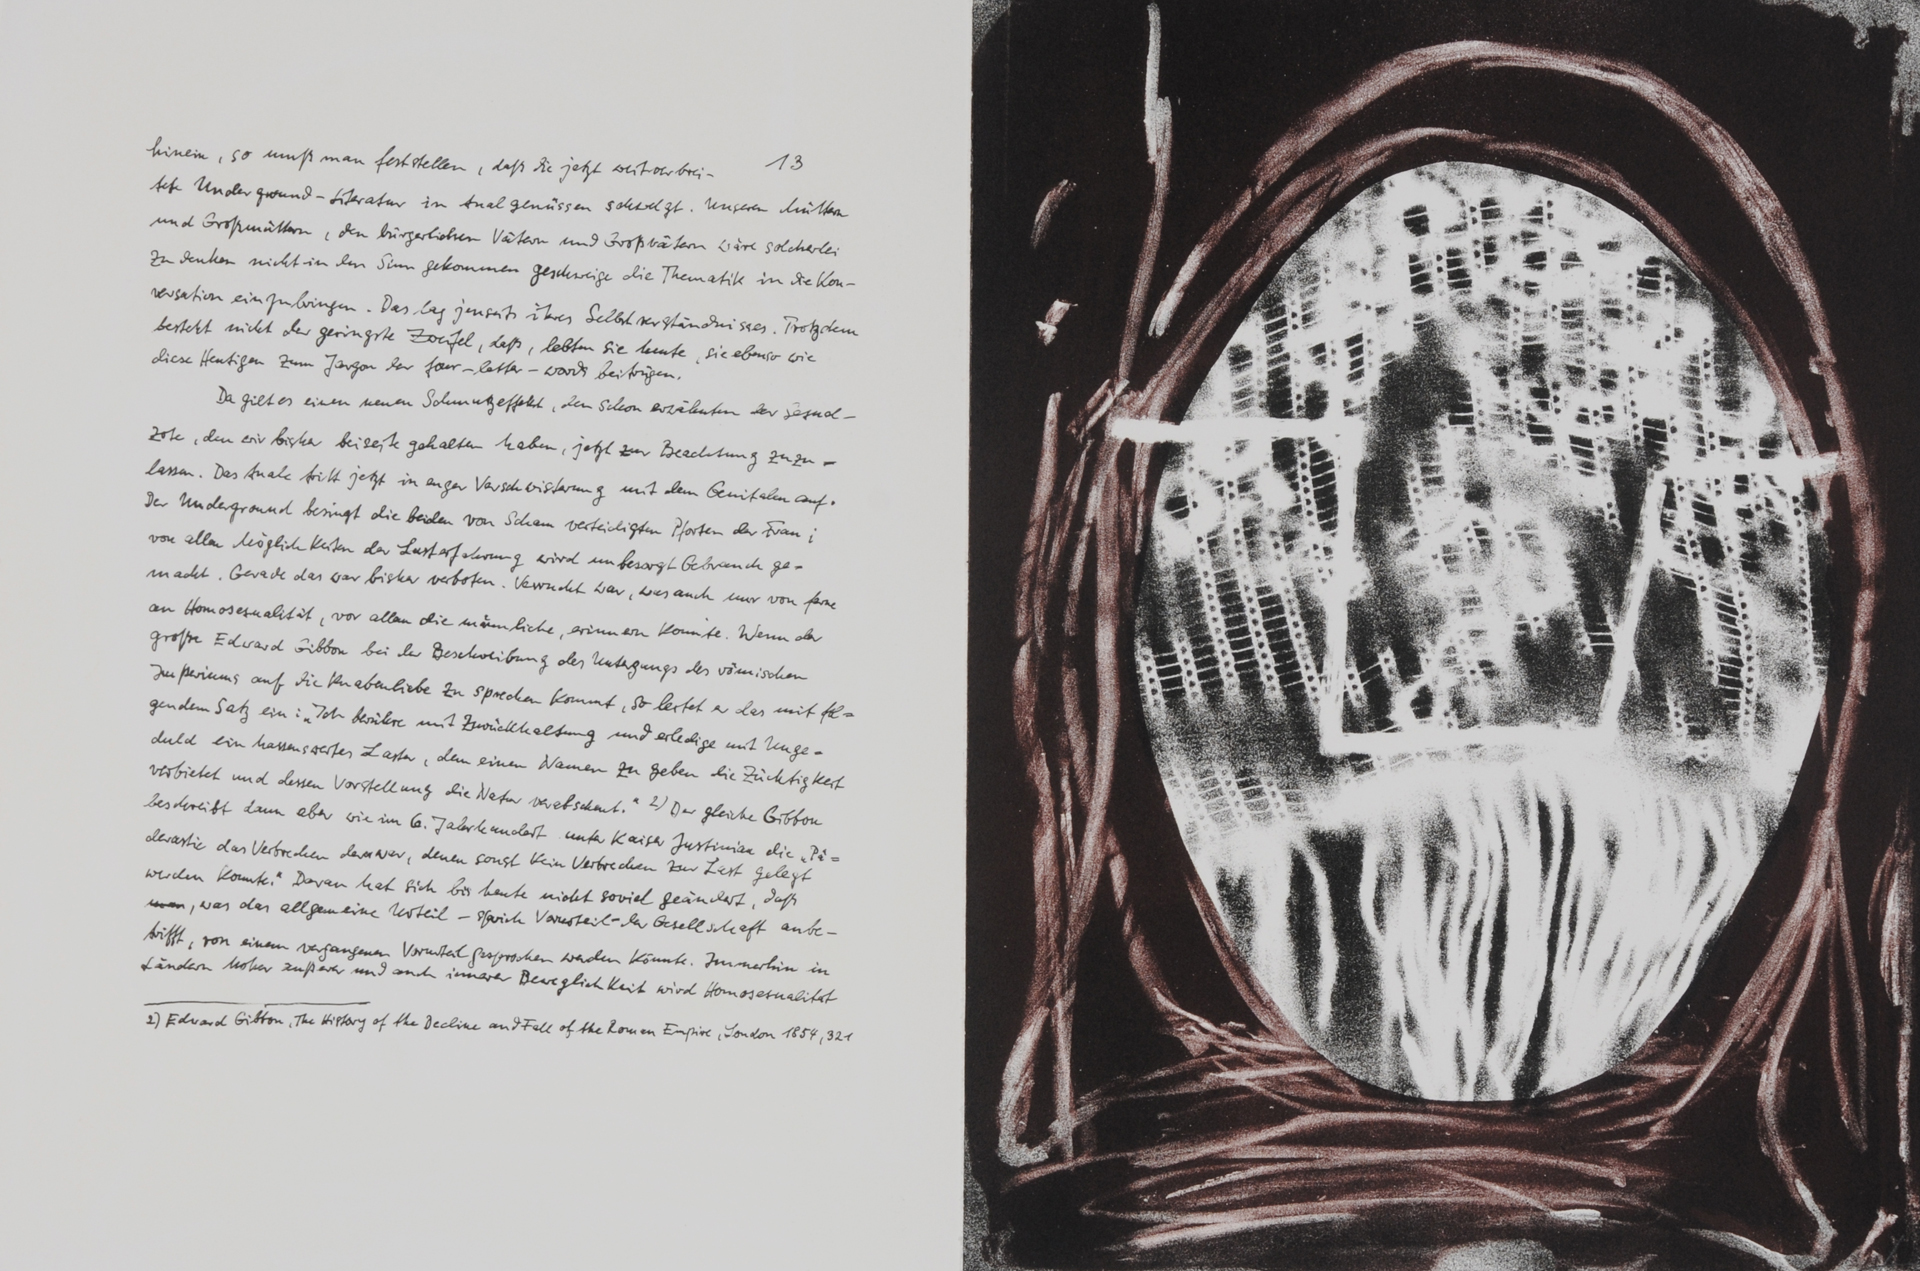 hinein, so muß man feststellen, daß die jetzt weitverbrei- 13
tete Underground-Literatur in Analgenüssen schwelgt. Unseren Müttern
und Großmüttern, den bürgerlichen Vätern und Großvätern wäre solcherlei
zu denken nicht in den Sinn gekommen geschweige die Thematik in die Kon-
versation einzubringen. Das lag jenseits ihres Selbstverständnisses. Trotzdem
besteht nicht der geringste Zweifel, daß, lebten sie heute, sie ebenso wie
diese Heutigen zum Jargon der four-letter-words beitrügen.
Da gilt es einen neuen Schmutzeffekt, den schon erwähnten der
zote, den wir bisher beiseite gehalten haben, jetzt zur Beachtung zuzu-
lassen. Das Anale tritt jetzt in enger Verschwisterung mit dem Genitalen auf.
Der Underground besingt die beiden von Scham verteidigten Pforten der Frau;
von allen Möglichkeiten der Lusterfahrung wird unbesorgt Gebrauch ge-
macht. Gerade das war bisher verboten. Verrucht war, was auch nur von ferne
an Homosexualität, vor allem die männliche, erinnern konnte. Wenn der
große Edward Gibbon bei der Beschreibung des Untergangs des römischen
Imperiums auf die Knabenliebe zu sprechen kommt, so leitet er das mit fol-
gendem Satz ein: „Ich berühre mit Zurückhaltung und erledige mit Unge-
duld ein hassenswertes Laster, dem einen Namen zu geben die Züchtigkeit
verbietet und dessen Vorstellung die Natur verabscheut." 2) Der gleiche Gibbon
beschreibt dann aber wie im 6. Jahrhundert unter Kaiser Justinian die „Pä-
derastie das Verbrechen derer war, denen sonst kein Verbrechen zur Last gelegt
werden konnte." Daran hat sich bis heute nicht soviel geändert, daß
, was das allgemeine Urteil – sprich Vorurteil – der Gesellschaft anbe-
trifft, von einem vergangenen Vorurteil gesprochen werden könnte. Immerhin in
Ländern hoher äußerer und auch innerer Beweglichkeit wird Homosexualität
2) Edward Gibbon, The History of the Decline and Fall of the Roman Empire, London 1854, 321